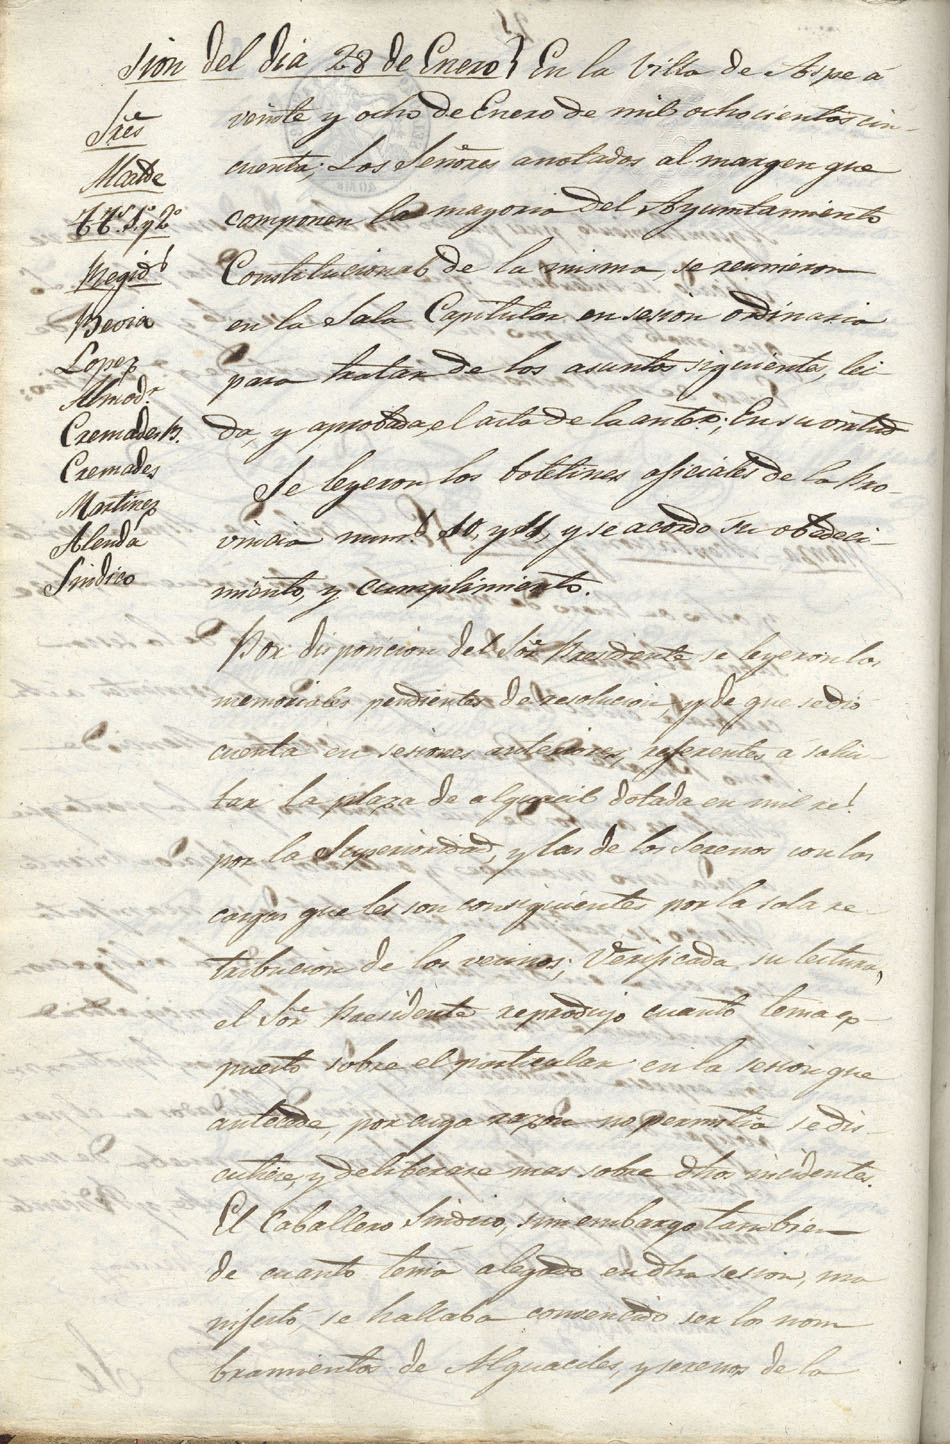 sion del dia 28 de Enero} En la Villa de Aspe á
veinte y ocho de Enero de mil ochocientos cin-
cuenta; Los Señores anotados al margen que
componen la mayoria del Ayuntamiento
Constitucional de la misma, se reunieron
en la Sala Capitular en sesion ordinaria
para tratar de los asuntos siguientes, lei-
da, y aprobada, el acta de la anter.r; En su virtud
Se leyeron los boletines oficiales de la Pro-
vincia num.s 10, y 11, y se acordó su obedeci-
miento, y cumplimiento.
Por disposicion del Sor. Presidente se leyeron los
memoriales pendientes de resolucion, y de que se dió
cuenta en sesiones anteriores, referentes a solici-
tar la plaza de alguacil dotada en mil rs.
por la Superioridad, y las de los Serenos con las
cargas que les son consiguientes por la sola re-
tribucion de los vecinos; Verificada su lectura,
el Sor. Presidente reprodujo cuanto tenia ex-
puesto sobre el particular en la sesion que
antecede, por cuya razon no permitia se dis-
cutiese, y deliberase mas sobre dhos incidentes.
El Caballero Sindico, sin embargo tambien
de cuanto tenia alegado en dha sesion, ma
nifestó, se hallaba convencido ser los nom
bramientos de Alguaciles, y serenos de la
Sres
Alcalde
TT.s 1.º y 2.º
Regid.s
Bevia
Lopez
Almod.r
Cremades B.
Cremades
Martinez
Alenda
Sindico